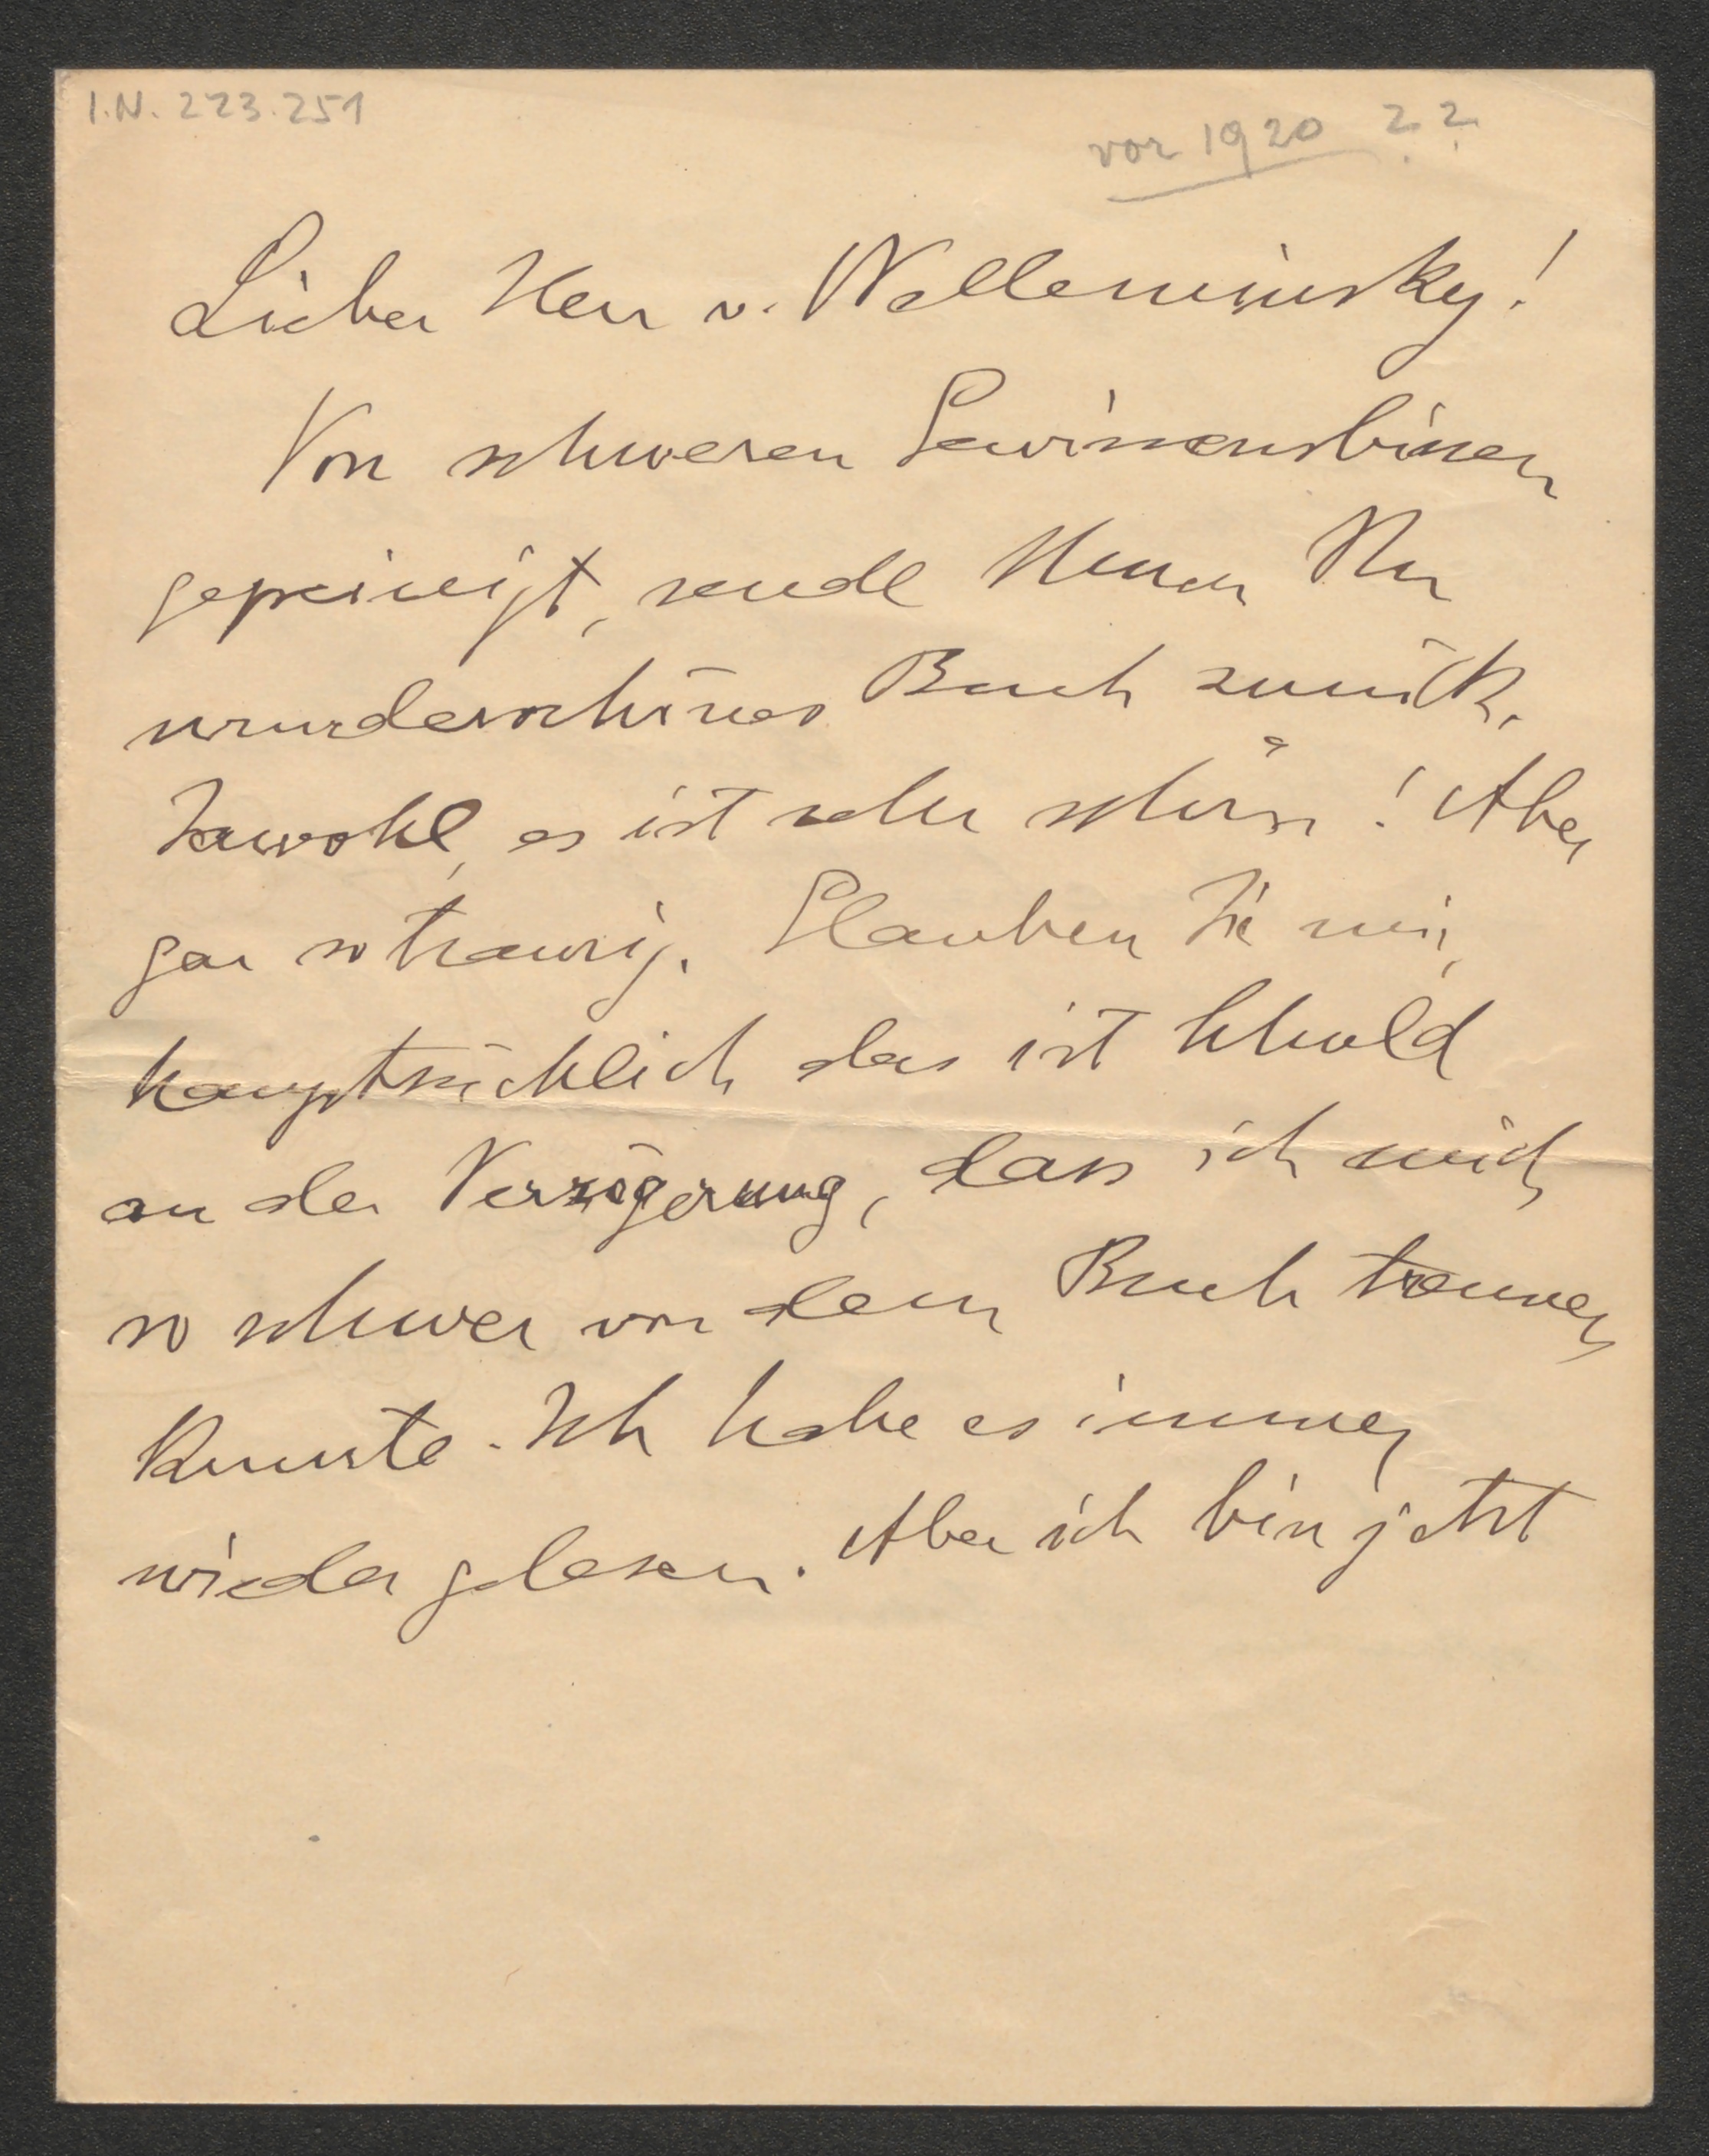 I.N. 223.251
vor 1920 ??
Lieber Herr v. Welleminsky!
Von schweren Gewissensbissen
gepeinigt, sende Ihnen Ihr
wunderschönes Buch zurück.
Jawohl, es ist sehr schön! Aber
gar so traurig. Glauben Sie mir,
hauptsächlich das ist Schuld
an der Verzögerung, dass ich mich
so schwer von dem Buch trennen
konnte. Ich habe es immer
wieder gelesen. Aber ich bin jetzt